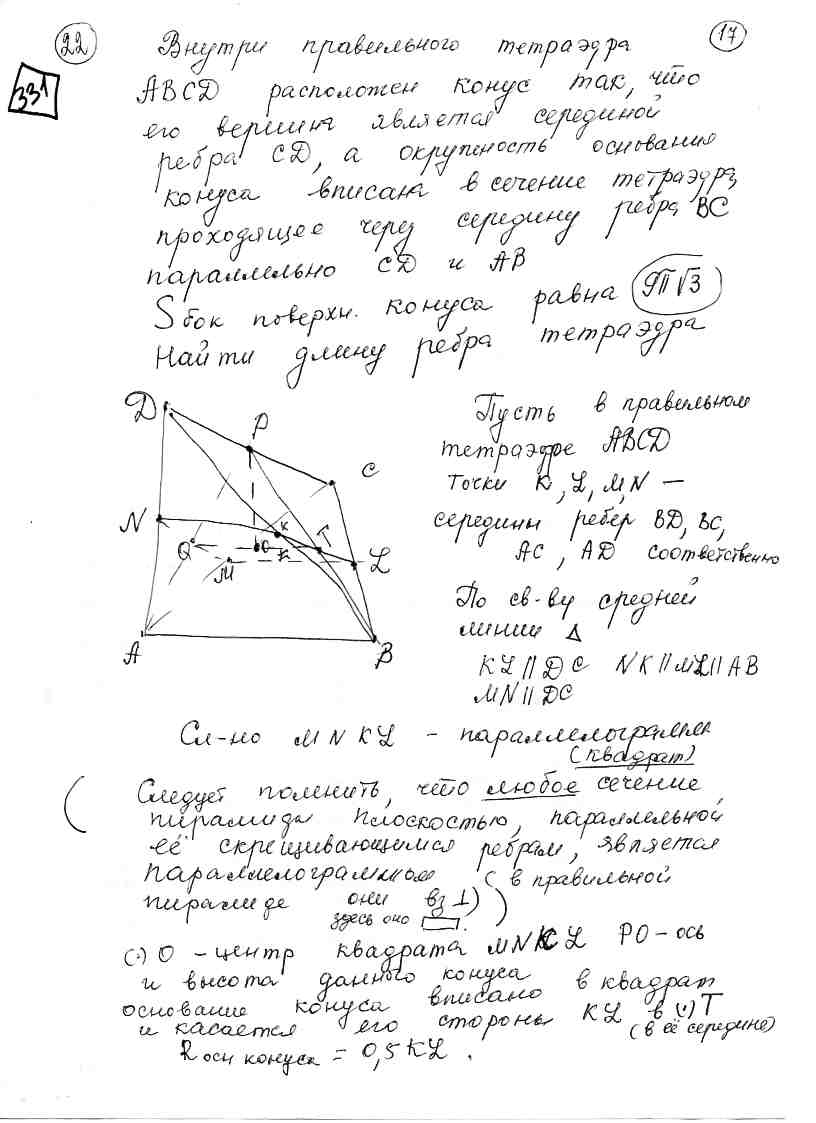 22
17
331
Внутри правильного тетраэдра
ABCD расположен конус так, что
его вершина является серединой
ребра CD, а окружность основания
конуса вписана в сечение тетраэдра,
проходящее через середину ребра BC
параллельно CD и AB
Sбок поверхн. конуса равна 9π√3
Найти длину ребра тетраэдра
D
P
C
N
K
T
Q
O
M
L
A
B
Пусть в правильном
тетраэдре ABCD
точки K, L, M, N –
середины ребер BD, BC,
AC, AD соответственно
По св-ву средней
линии Δ
KL || DC NK || ML || AB
MN || DC
Сл-но MNKL – параллелограмм
(квадрат)
( Следует помнить, что любое сечение
пирамиды плоскостью, параллельной
её скрещивающимся ребрам, является
параллелограммом (в правильной
пирамиде они вз ⊥) )
здесь оно ▭.
(·) O – центр квадрата MNKL PO – ось
и высота данного конуса в квадрат
основание конуса вписано
и касается его стороны KL в (·) T
(в её середине)
Rосн конуса = 0,5 KL.